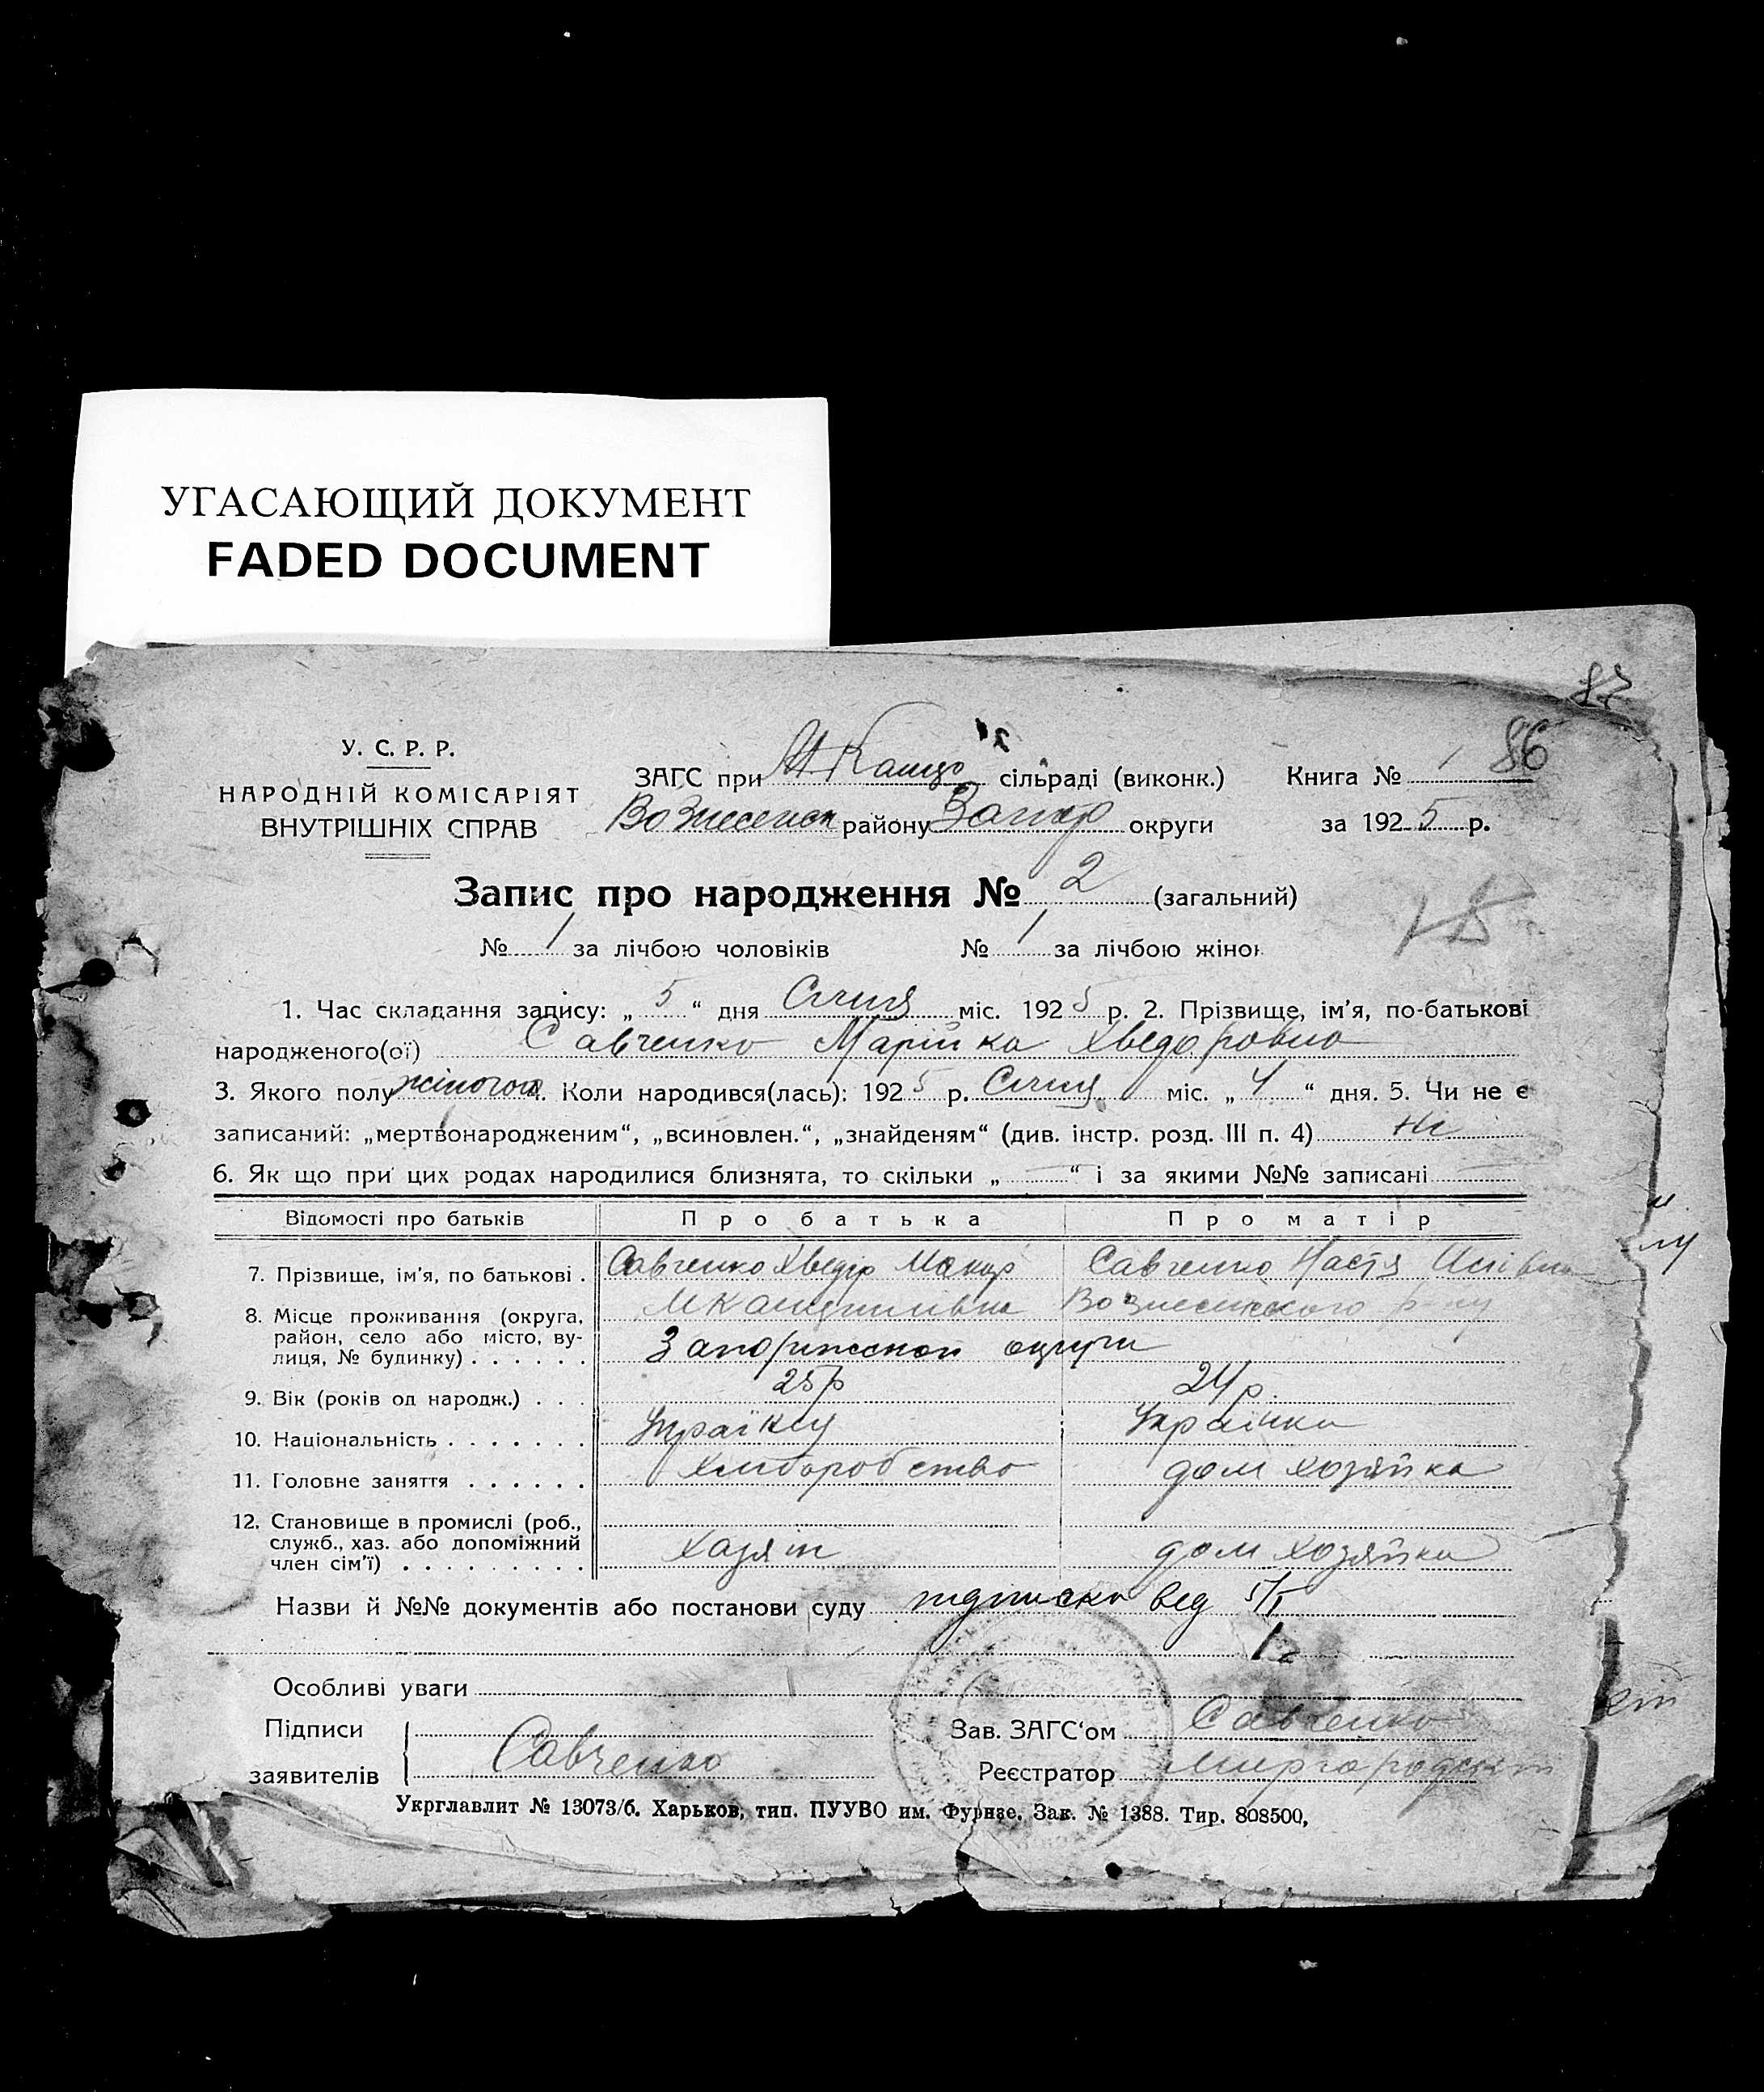 УГАСАЮЩИЙ ДОКУМЕНТ
FADED DOCUMENT
87
86
У. С. Р. Р.
НАРОДНІЙ КОМІСАРІЯТ
ВНУТРІШНІХ СПРАВ
ЗАГС при сільраді (виконк.) Книга № 1
Вознесенск району Запор округи за 1925 р.
Запис про народження № 2 (загальний)
№ 1 за лічбою чоловіків № 1 за лічбою жінок
1. Час складання запису: „ 5 “ дня Січня міс. 1925 р. 2. Прізвище, ім'я, по-батькові
народженого(ої) Савченко Марійка Хведоровна
3. Якого полу жіночого 4. Коли народився(лась): 1925 р. Січня міс. „ 4 “ дня. 5. Чи не є
записаний: „мертвонародженим“, „всиновлен.“, „знайденям“ (див. інстр. розд. III п. 4) Ні
6. Як що при цих родах народилися близнята, то скільки „ “ і за якими №№ записані
Відомості про батьків Про батька Про матір
7. Прізвище, ім'я, по батькові . Савченко Хведір Макар Савченко Настя
8. Місце проживання (округа, Вознесенского р-ну
район, село або місто, ву-
лиця, № будинку) . . . . . . Запоріжской округи
9. Вік (років од народж.) . . . 25 р 24 р.
10. Національність . . . . . . . Українец Украінка
11. Головне заняття . . . . . . Хліборобство дом хозяйка
12. Становище в промислі (роб.,
служб., хаз. або допоміжний
член сім'ї) . . . . . . . . . Хазяін дом хозяйка
Назви й №№ документів або постанови суду підписка вед 5/I
Особливі уваги
Підписи Зав. ЗАГС‘ом Савченко
заявителів Савченко Реєстратор Миргородский
Укрглавлит № 13073/б. Харьков, тип. ПУУВО им. Фрунзе. Зак. № 1388. Тир. 808500,